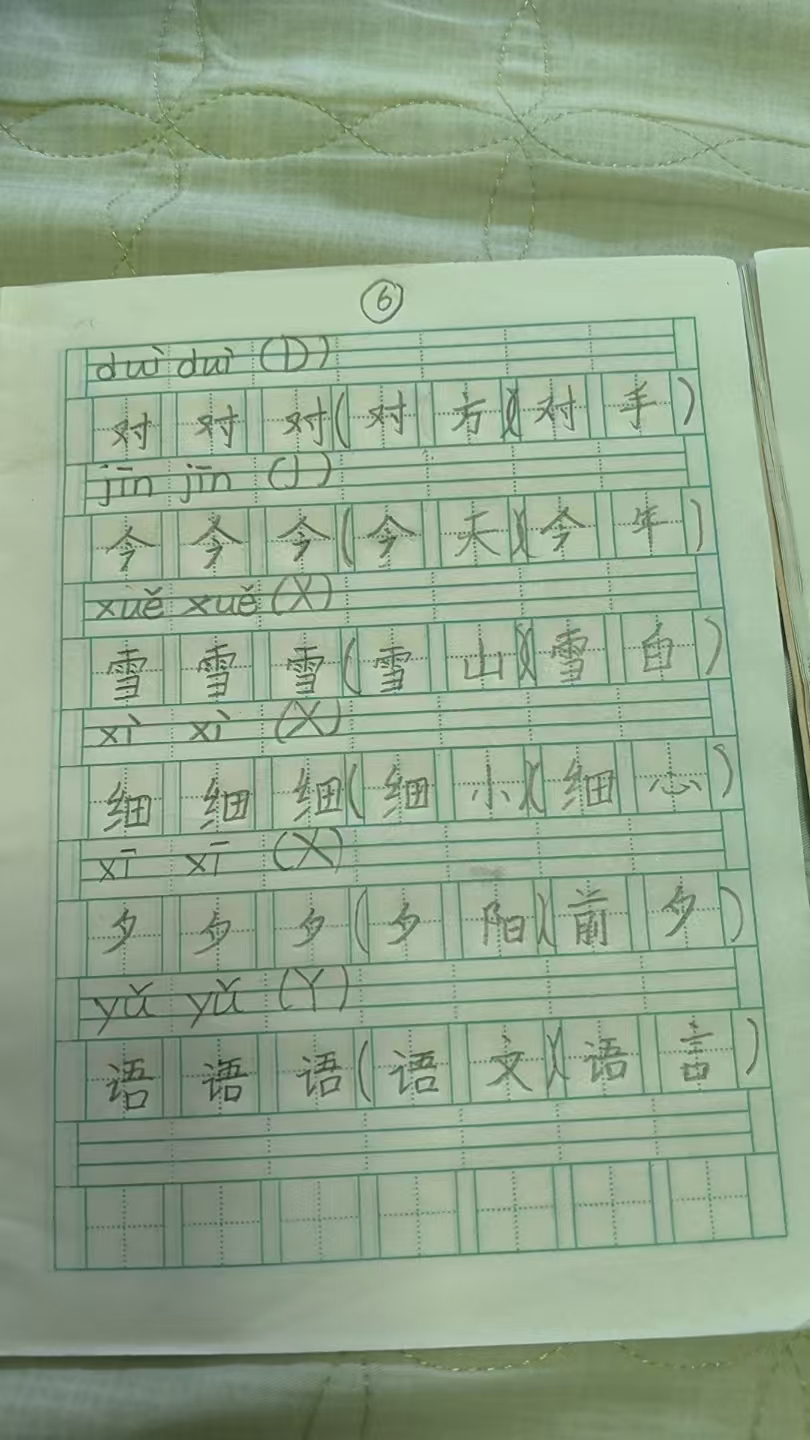 ⑥
duì duì (D)
对 对 对(对 方)(对 手)
jīn jīn (J)
今 今 今(今 天)(今 年)
xuě xuě (X)
雪 雪 雪(雪 山)(雪 白)
xì xì (X)
细 细 细(细 小)(细 心)
xī xī (X)
夕 夕 夕(夕 阳)(前 夕)
yǔ yǔ (Y)
语 语 语(语 文)(语 言)